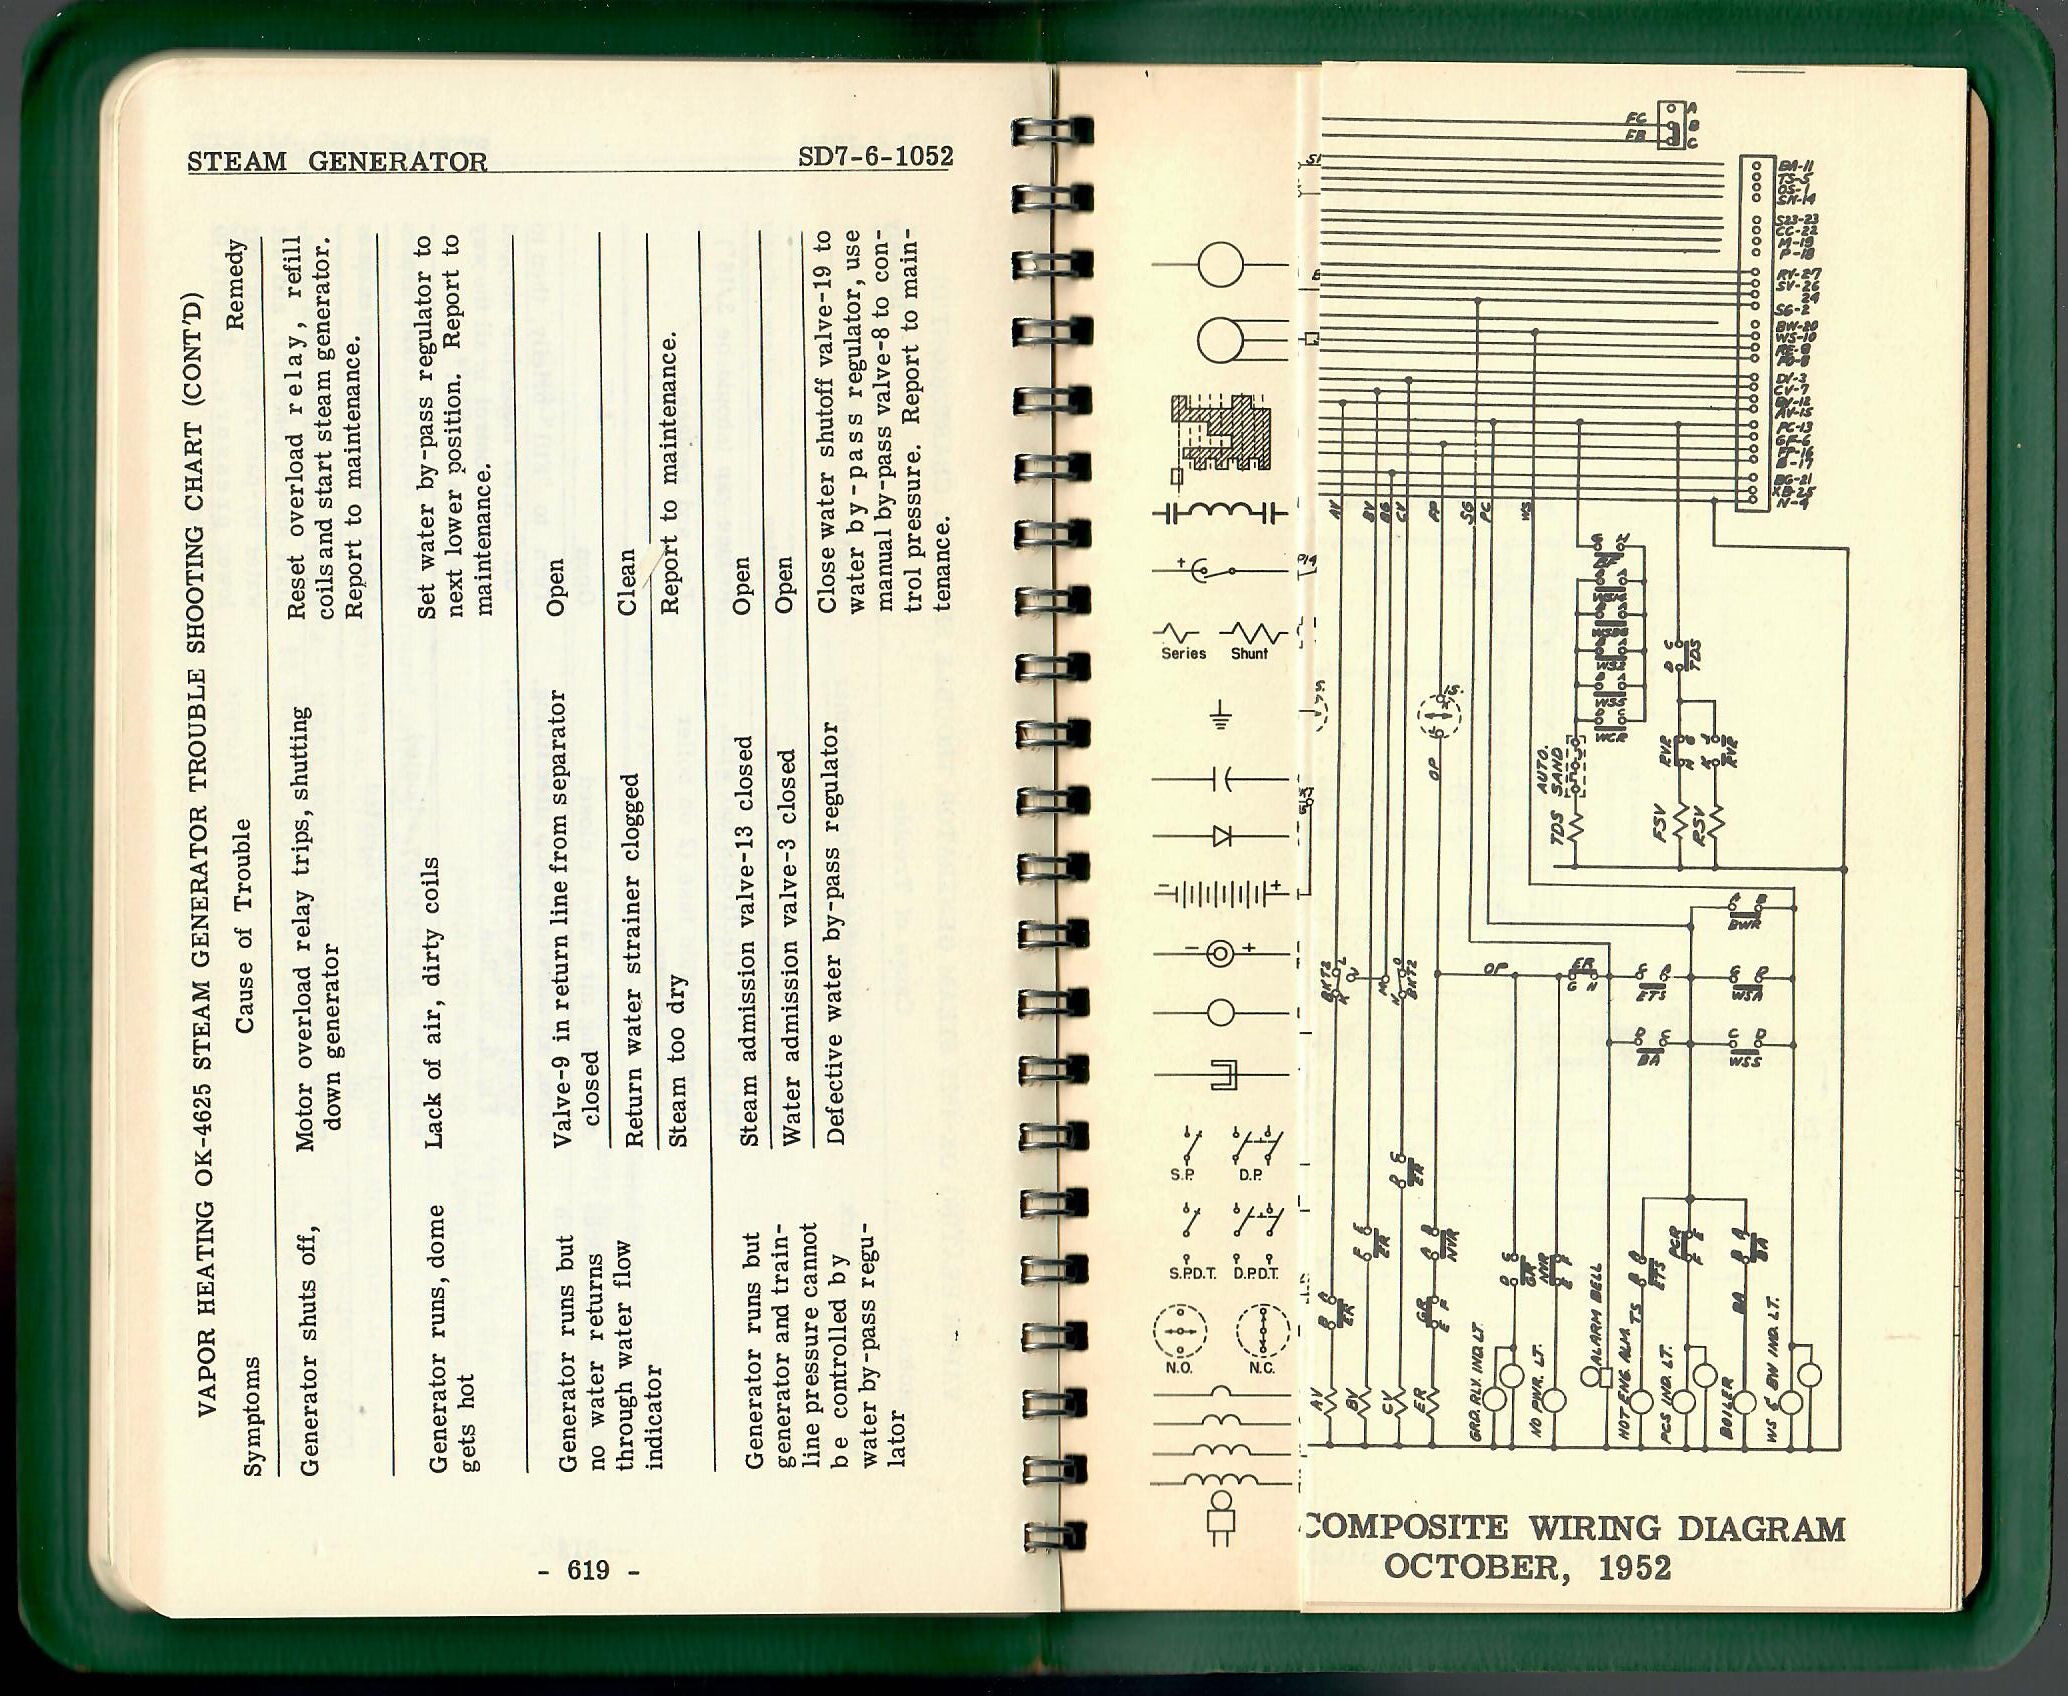 STEAM GENERATOR SD7-6-1052
VAPOR HEATING OK-4625 STEAM GENERATOR TROUBLE SHOOTING CHART (CONT'D)
Symptoms Cause of Trouble Remedy
Generator shuts off, Motor overload relay trips, shutting Reset overload relay, refill
down generator coils and start steam generator.
Report to maintenance.
Generator runs, dome Lack of air, dirty coils Set water by-pass regulator to
gets hot next lower position. Report to
maintenance.
Generator runs but Valve-9 in return line from separator Open
no water returns closed
through water flow Return water strainer clogged Clean
indicator Steam too dry Report to maintenance.
Generator runs but Steam admission valve-13 closed Open
generator and train- Water admission valve-3 closed Open
line pressure cannot Defective water by-pass regulator Close water shutoff valve-19 to
be controlled by water by-pass regulator, use
water by-pass regu- manual by-pass valve-8 to con-
lator trol pressure. Report to main-
tenance.
- 619 -
Series Shunt
S.P. D.P.
S.P.D.T. D.P.D.T.
N.O. N.C.
FC
EB
A
B
C
BA-11
TS-5
OS-1
SN-14
S23-23
CC-22
M-19
P-18
RV-27
SV-26
24
SG-2
BW-20
WS-10
RE-9
DV-3
CV-7
BV-12
AV-15
PC-13
GF-6
FP-16
B-17
BG-21
XB-25
N-4
AV BV BG CV FP SG PC WS
WCR
TDS
AUTO.
SAND
TDS
FSV
RSV
RVR
RVR
OP
OP
BKT2
BKT2
ER
ETS
BWR
WSA
BA
WSS
ER
ER
ER
NVR
GR
GR
NVR
ETS
PCR
BA
AV
BV
CV
ER
GRD. RLY. IND. LT.
NO PWR. LT.
ALARM BELL
HOT ENG. ALM TS
PCS IND. LT.
BOILER BA
WS & BW IND. LT.
COMPOSITE WIRING DIAGRAM
OCTOBER, 1952